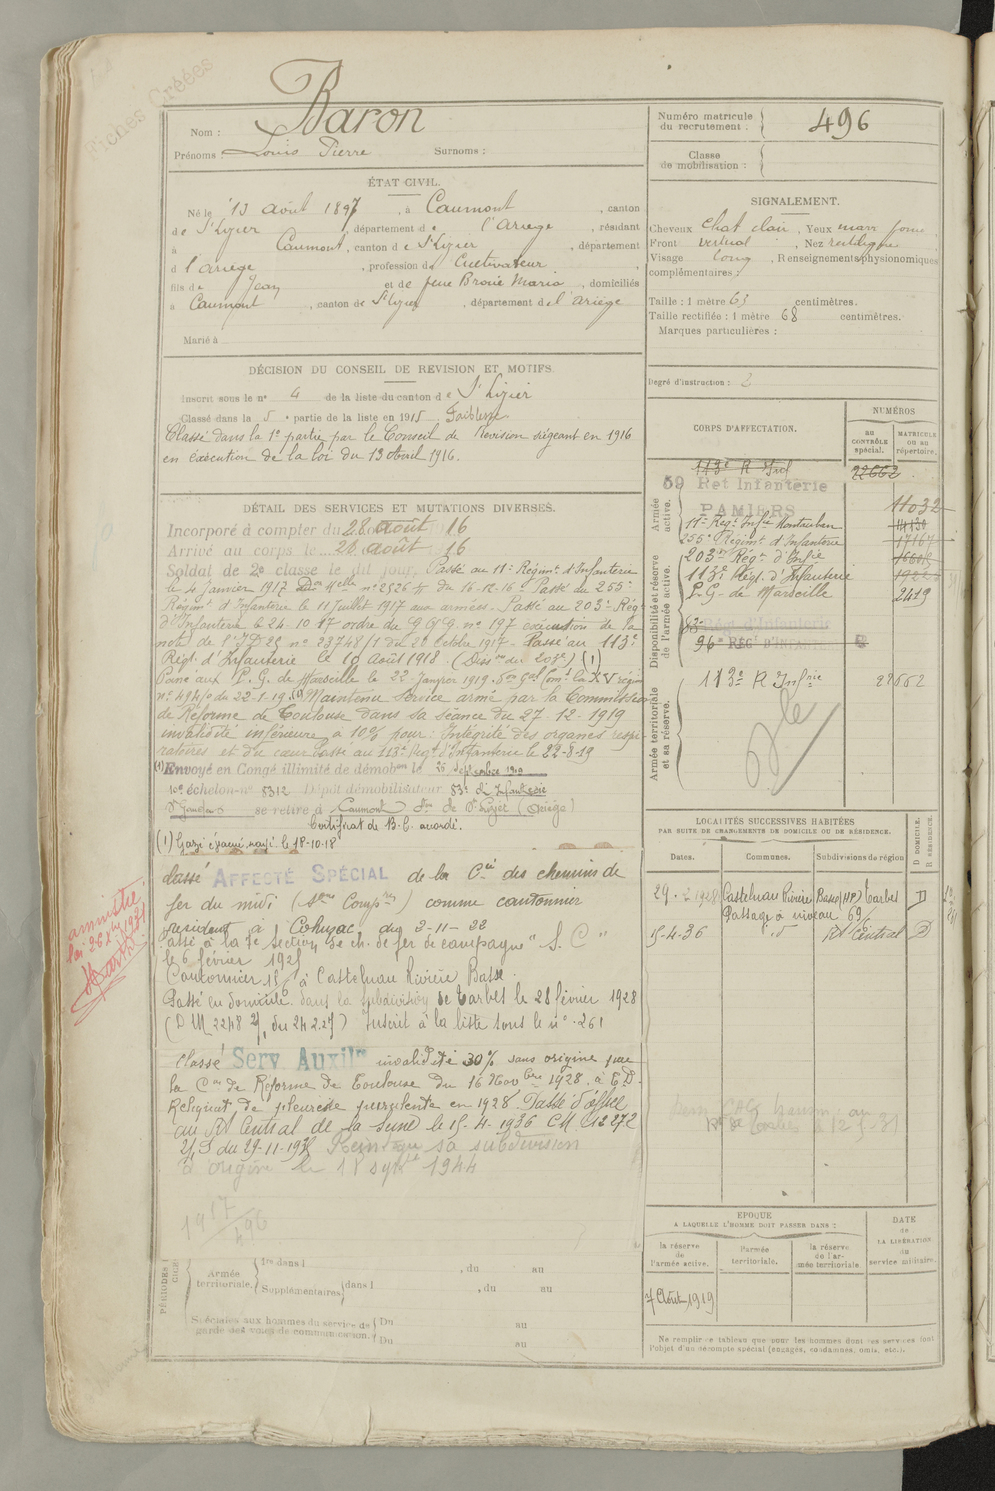 Fiches Créées
Nom : Baron
Prénoms : Louis Pierre Surnoms :
Numéro matricule du recrutement : 496
Classe de mobilisation :
ÉTAT CIVIL.
Né le 13 août 1897, à Caumont, canton
de St Lizier, département de l'Ariège, résidant
à Caumont, canton de St Lizier, département
d l'ariège, profession de Cultivateur
fils de Jean et de feue Broué Maria, domiciliés
à Caumont, canton de St Lizier, département de l'ariège
Marié à
SIGNALEMENT.
Cheveux chat clair, Yeux marr
Front vertical, Nez rectiligne
Visage long, Renseignements physionomiques
complémentaires :
Taille : 1 mètre 63 centimètres.
Taille rectifiée : 1 mètre 68 centimètres.
Marques particulières :
Degré d'instruction : 2
DÉCISION DU CONSEIL DE REVISION ET MOTIFS.
Inscrit sous le n° 4 de la liste du canton de St Lizier
Classé dans la 5e partie de la liste en 1915 Faiblesse
Classé dans la 1e partie par le Conseil de Revision siégeant en 1916
en exécution de la loi du 13 Avril 1916.
DÉTAIL DES SERVICES ET MUTATIONS DIVERSES.
Incorporé à compter du 28 août 16
Arrivé au corps le 28 août 16
Soldat de 2e classe le dit jour. Passé au 11e Régimt d'Infanterie
le 4 janvier 1917 Don Mlle n° 2526 du 16-12-16. Passé au 255e
Régimt d'Infanterie le 11 Juillet 1917 aux armées. Passé au 203e Régt
d'Infanterie le 24.10.17 ordre du G.Q.G. n° 197 exécution de la
note de l'I.D 29 n° 23748/1 du 20 octobre 1917. Passé au 113e
Régt d'Infanterie le 10 Août 1918. (Dion du 203e) (1)
Passé aux P.G. de Marseille le 22 Janvier 1919. Son Gal Comt la XV région
n° 494/0 du 22-1-19. Maintenu service armé par la Commission
de Réforme de Toulouse dans sa séance du 27-12-1919
invalidité inférieure à 10% pour : Intégrité des organes respi-
ratoires et du cœur. Passé au 113e Régt d'Infanterie le 22-8-19
(1) Envoyé en Congé illimité de démobon le 25 Septembre 1919
10e échelon n° 5312 Dépôt démobilisateur 83e d'Infanterie
St Gaudens se retire à Caumont con de St Lizier (Ariège)
Certificat de B.C. accordé.
(1) Gazé évacué 18-10-18
Classé AFFECTÉ SPÉCIAL de la Cie des chemins de
fer du midi (Son Campne) comme cantonnier
résident à Cahuzac du 2-11-22
Passé à la 7e Section de ch. de fer de campagne "S.C"
le 6 février 1925
Cantonnier à Castelnau Rivière Basse.
Passé en domicile dans la subdivision de Tarbes le 28 février 1928
(D M 2248 du 24.2.27) Inscrit à la liste sous le n° 261
Classé Serv. Auxilre invalidité 30% sans origine par
la Con de Réforme de Toulouse du 16 Novbre 1928. à E.D.
Reliquat de pleurésie purulente en 1928. Passé d'office
au Rt Central de la Seine le 15-4-1936 CM 12272
du 29-11-1935 Réintègre sa subdivision
d'origine le 18 septbre 1944
1917/496
amnistié
loi 26 1931
CORPS D'AFFECTATION.
NUMÉROS
au CONTRÔLE spécial.
MATRICULE ou au répertoire.
Armée active.
113e R Inf 22662
59 Ret Infanterie
PAMIERS 11032
11e Regt Infie Montauban
255e Régimt d'Infanterie 17167
Disponibilité et réserve de l'armée active.
203e Régt d'Infie
113e Régt d'Infanterie
P.G. de Marseille 2419
83e Régt d'Infanterie
96e REGt D'INFANTERIE
Armée territoriale et sa réserve.
113e R Infrie 22662
LOCALITÉS SUCCESSIVES HABITÉES
PAR SUITE DE CHANGEMENTS DE DOMICILE OU DE RÉSIDENCE.
Dates. Communes. Subdivisions de région D DOMICILE. R RÉSIDENCE.
29.2.1928 Castelnau Rivière Basse (HP) Tarbes D
Passage à niveau 69
15-4-36 d° Rt Central D
EPOQUE
A LAQUELLE L'HOMME DOIT PASSER DANS :
la réserve de l'armée active.
l'armée territoriale.
la réserve de l'armée territoriale.
DATE de LA LIBÉRATION du service militaire.
7 Août 1919
PÉRIODES
Armée territoriale. 1re dans l , du au
Supplémentaires dans l , du au
Spéciales aux hommes du service de garde des voies de communication. Du au
Du au
Ne remplir ce tableau que pour les hommes dont les services font
l'objet d'un décompte spécial (engagés, condamnés, omis, etc.).